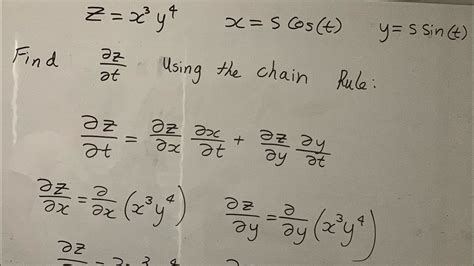 z = x³y⁴ x = s cos(t) y = s sin(t)
Find ∂z/∂t Using the chain Rule:
∂z/∂t = ∂z/∂x ∂x/∂t + ∂z/∂y ∂y/∂t
∂z/∂x = ∂/∂x (x³y⁴) ∂z/∂y = ∂/∂y (x³y⁴)
∂z